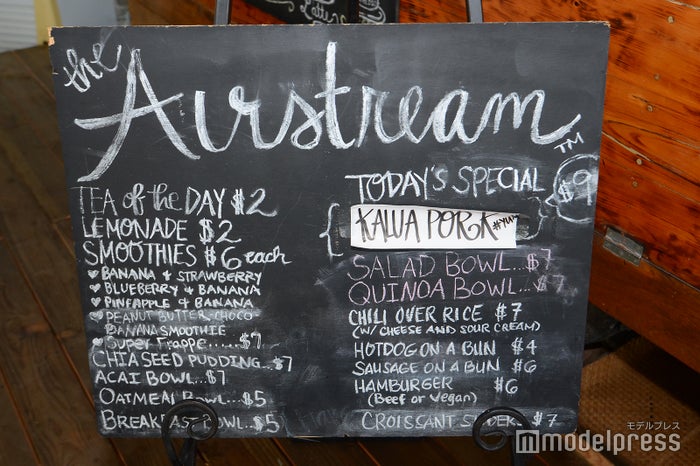 the
Airstream™
TEA of the DAY $2
LEMONADE $2
SMOOTHIES $6 each
♥ BANANA & STRAWBERRY
♥ BLUEBERRY & BANANA
♥ PINEAPPLE & BANANA
♥ PEANUT BUTTER-CHOCO
BANANA SMOOTHIE
♥ Super Frappe......$7
CHIA SEED PUDDING...$7
ACAI BOWL...$7
OATMEAL BOWL..$5
BREAKFAST BOWL..$5
TODAY'S SPECIAL
$9
{ KALUA PORK #YUM }
SALAD BOWL...$7
QUINOA BOWL...$7
CHILI OVER RICE $7
(W/ CHEESE AND SOUR CREAM)
HOTDOG ON A BUN $4
SAUSAGE ON A BUN $6
HAMBURGER $6
(Beef or Vegan)
CROISSANT $7
モデルプレス
modelpress